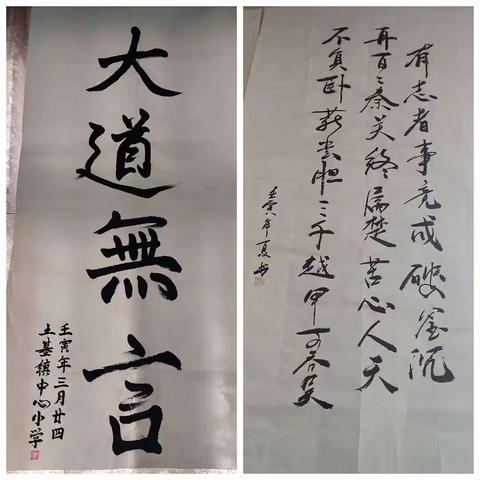 大道無言
壬寅年三月廿四
土基镇中心小学
有志者事竟成破釜沉
舟百二秦关终属楚苦心人天
不负卧薪尝胆三千越甲可吞吴
壬寅年夏书